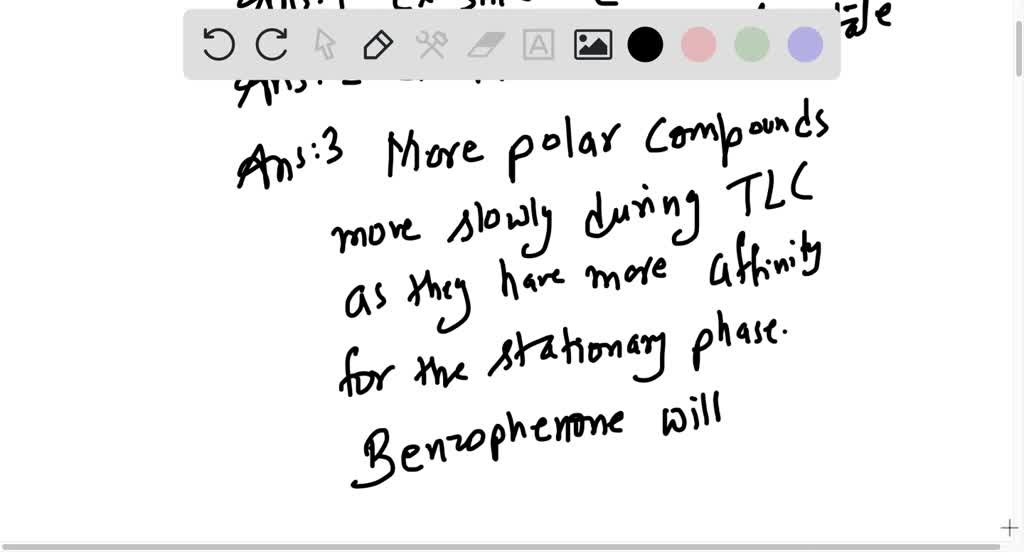 Ans:3 More polar compounds
move slowly during TLC
as they have more affinity
for the stationary phase.
Benzophenone will